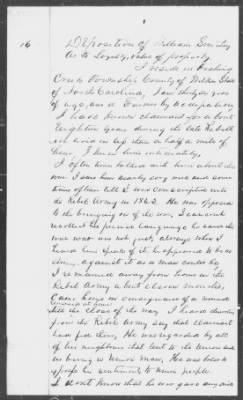 16
Deposition of William
As to Loyalty, value of property
I reside in
Creek Township County of Wilkes State
of North Carolina, I am
of age, am a Farmer by occupation
I have known claimant for about
Eighteen years during the late Rebell
ion lived in less than a half a mile of
him. I
I often times talked with him about the
war I saw him nearly every one and some
times often till I was Conscripted into
the Rebel Army in 1863. He was opposed
to the bringing on of the war, I can not
recollect the precise language he said the
war was not just, always when I
heard him speak of it he appeared to be as
strong against it as a man could be
I remained away from home in the
Rebel Army about eleven months,
Came home in consequence of a wound
remained at home
till the close of the war. I heard
from the Rebel Army say that claimant
had fed them, He was regarded by all
of his neighbors that went to the Union as
being a Union man, He was
his sentiments to Union people.
I don't know that he ever gave any aid